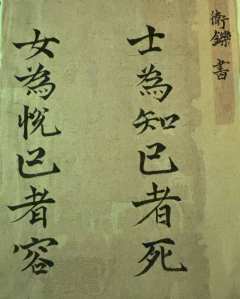 衛鑠書
士為知己者死
女為悅己者容